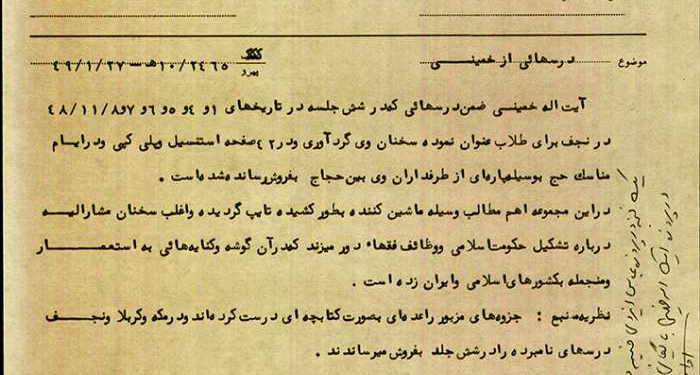 موضوع درسهائی از خمینی
پیرو ۱۰/۲۴۶۵ هـ — ۴۹/۱/۲۷
آیت اله خمینی ضمن درسهائی که در شش جلسه در تاریخهای ۱ و ۴ و ۵ و ۶ و ۷ و ۴۸/۱۱/۸
در نجف برای طلاب عنوان نموده سخنان وی گردآوری و در ۴۲ صفحه استنسیل و پلی کپی و در ایام
مناسك حج بوسیله پاره‌ای از طرفداران وی بین حجاج بفروش رسانده شده است .
در این مجموعه اهم مطالب وسیله ماشین کننده بطور کشیده تایپ گردیده و اغلب سخنان مشارالیه
درباره تشکیل حکومت اسلامی و وظائف فقهاء دور میزند که در آن گوشه و کنایه‌هائی به استعمار
و منجمله بکشورهای اسلامی و ایران زده است .
نظریه منبع : جزوه‌های مزبور را عده‌ای بصورت کتابچه ای درست کرده‌اند و در مکه و کربلا و نجف
درسهای نامبرده را در شش جلد بفروش میرساندند .